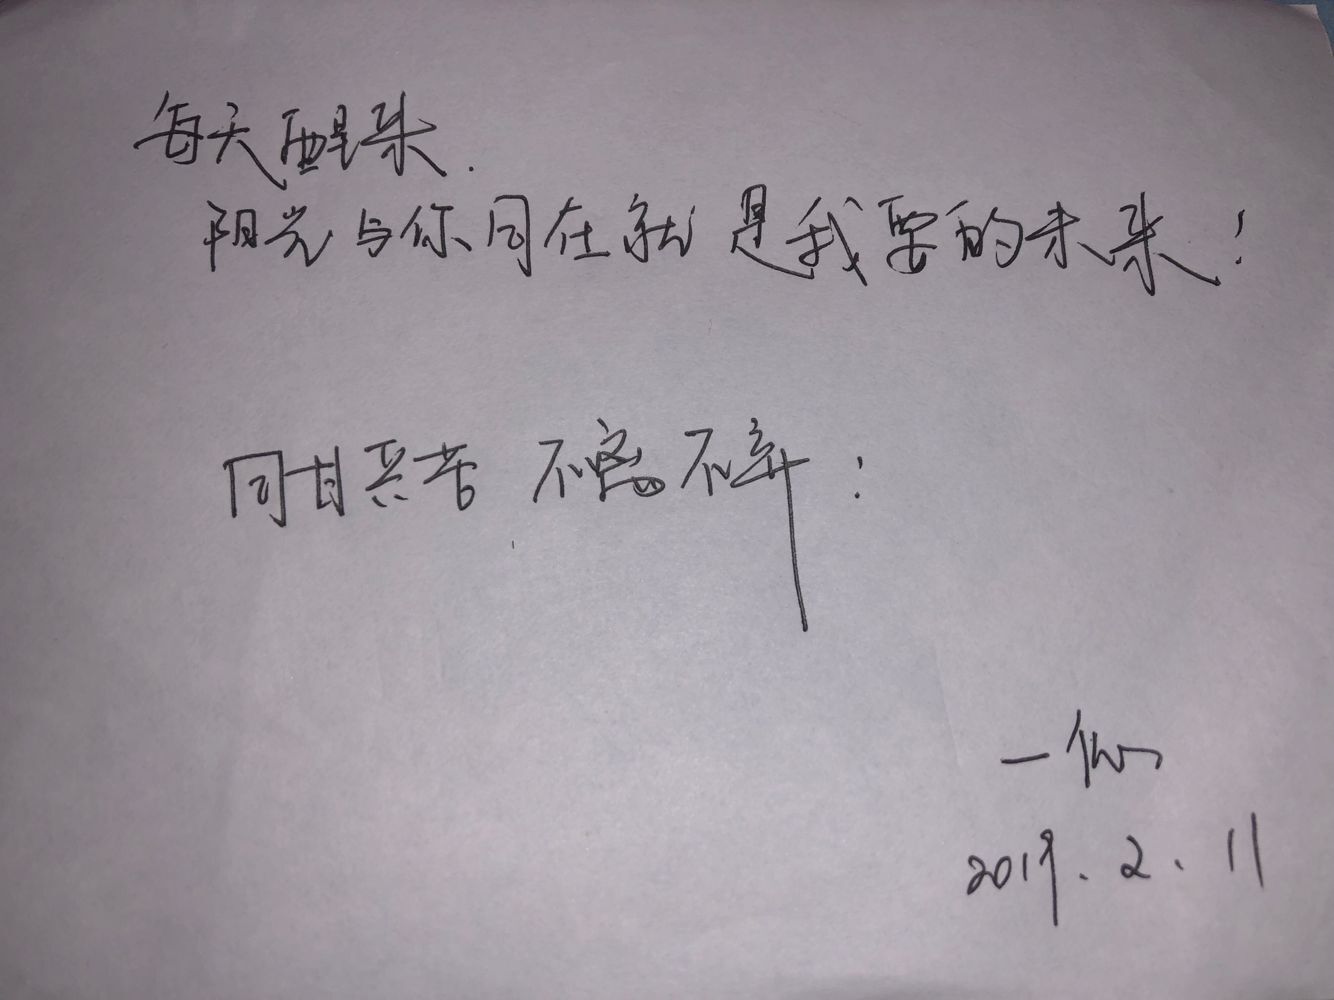 每天醒来.
阳光与你同在就是我要的未来!
同甘共苦 不离不弃!
一
2019.2.11